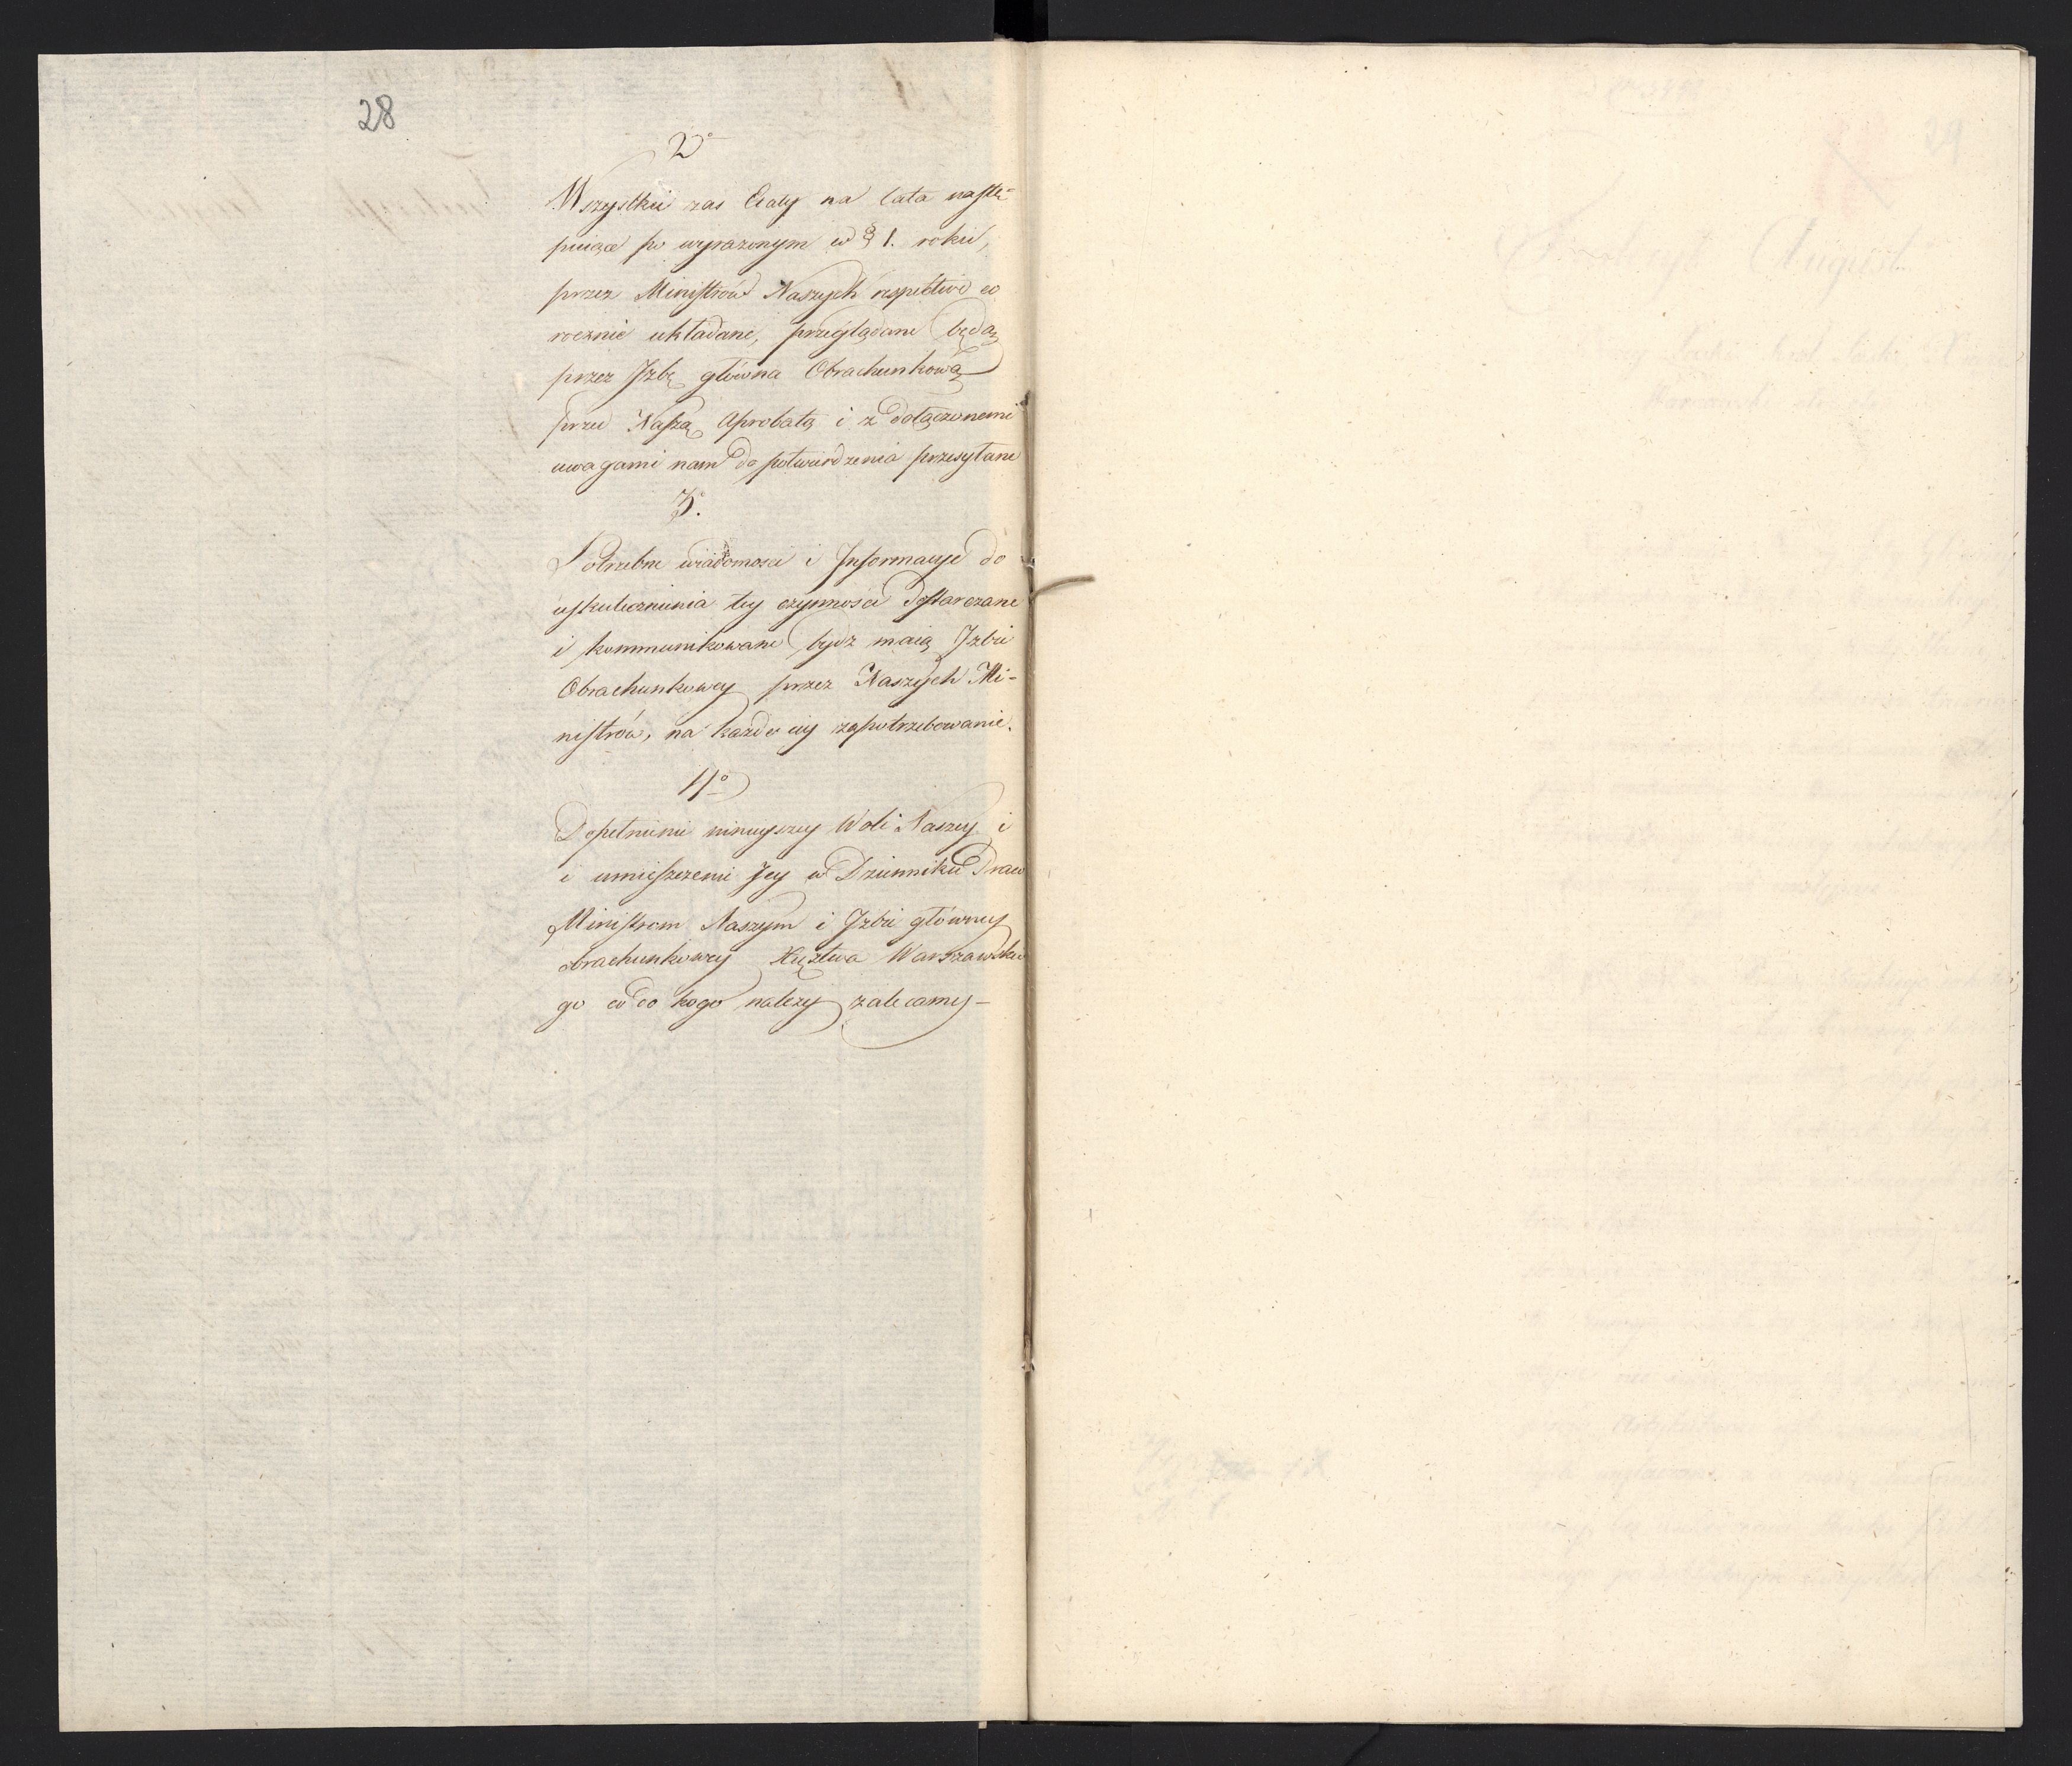 28
2º
Wszystkie zas Etaty na lata nastę-
puiące po wyrazonym w § 1. roku,
przez Ministrów Naszych respective co
rocznie układane, przeglądane będą
przez Jzbę główna Obrachunkową
przed Naszą Aprobatą i z dołączonemi
uwagami nam do potwierdzenia przesyłane
3º.
Potrzebne wiadomosci i Informacye do
uskutecznienia tey czynnosci dostarczane
i kommunikowane bydz maią Jzbie
Obrachunkowey przez Naszych Mi-
nistrów, na każde iey zapotrzebowanie.
4º
Dopełnienie ninieyszey Woli Naszey i
i umieszczenie Jey w Dzienniku Praw
Ministrom Naszym i Jzbie główney
obrachunkowey Xięztwa Warszawskie
go co do kogo nalezy zalecamy -